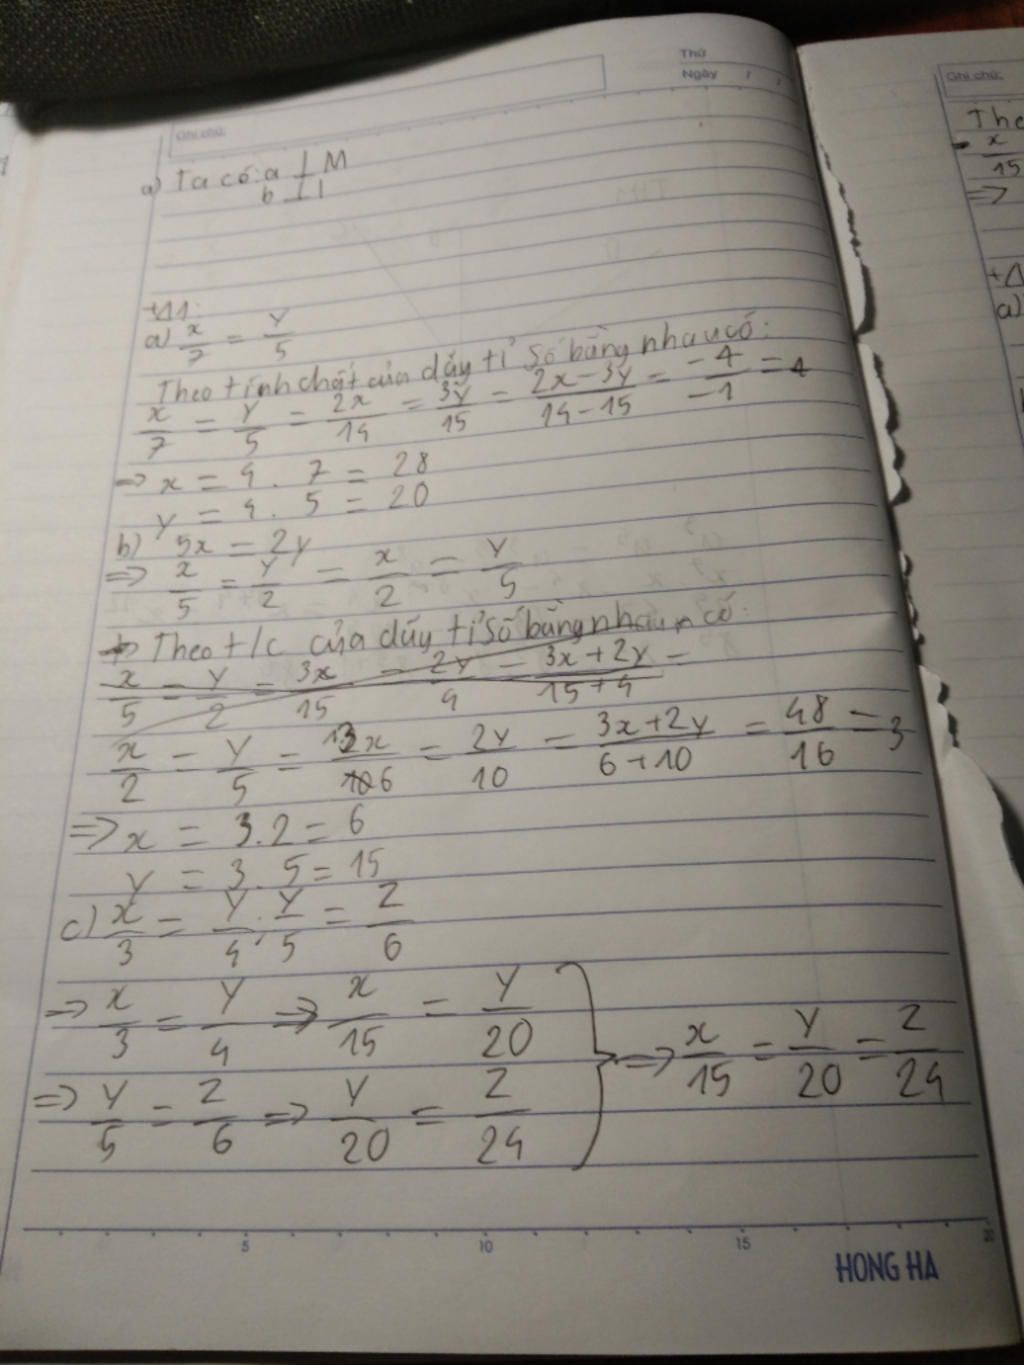 Thứ
Ngày / /
Ghi chú:
a) Ta có: a ⊥ M
b ⊥ 1
+Δ1:
a) x/7 = y/5
Theo tính chất của dãy tỉ số bằng nhau có:
x/7 = y/5 = 2x/14 = 3y/15 = 2x-3y/14-15 = -4/-1 = 4
=> x = 4 . 7 = 28
y = 4 . 5 = 20
b) 5x = 2y
=> x/5 = y/2 = x/2 = y/5
=> Theo t/c của dãy tỉ số bằng nhau có:
x/5 = y/2 = 3x/15 = 2y/4 = 3x+2y/15+4 =
x/2 = y/5 = 3x/6 = 2y/10 = 3x+2y/6+10 = 48/16 = 3
=> x = 3.2 = 6
y = 3.5 = 15
c) x/3 = y/4; y/5 = z/6
=> x/3 = y/4 => x/15 = y/20
=> y/5 = z/6 => y/20 = z/24
} => x/15 = y/20 = z/24
5 10 15 20
HONG HA
Ghi chú:
The
x/15
=>
+Δ
a)